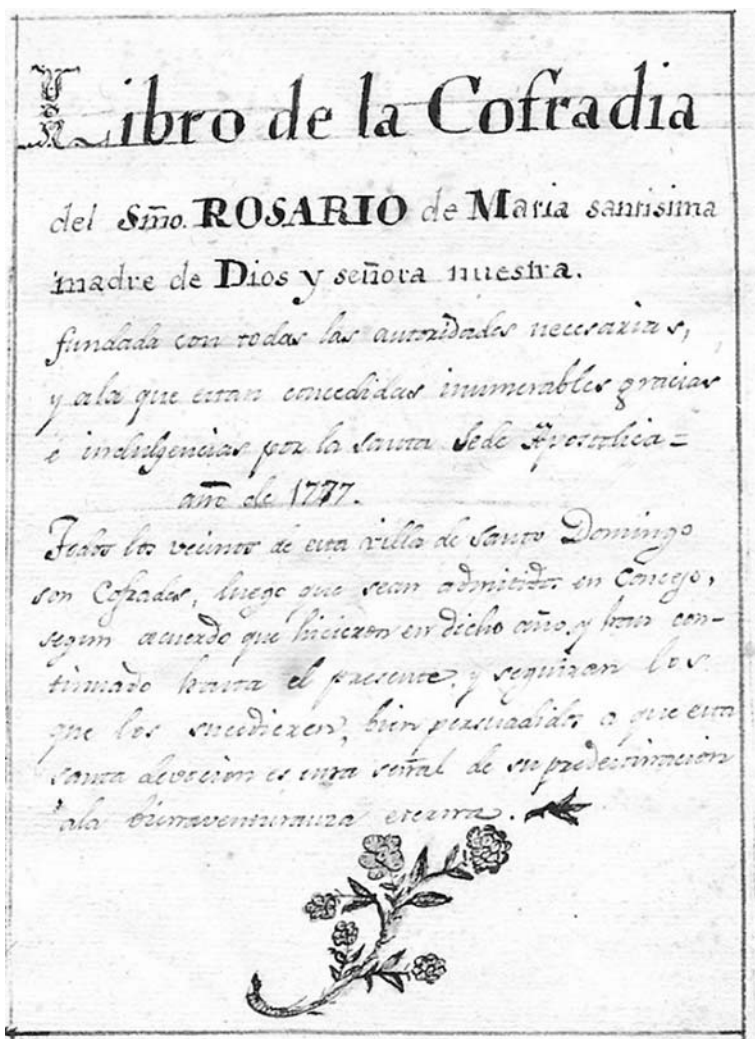 Libro de la Cofradia
del Smo. ROSARIO de Maria santisima
madre de Dios y señora nuestra.
fundada con todas las autoridades necesarias,
y ala que estan concedidas inumerables gracias
e indulgencias por la santa Sede Apostolica =
año de 1777.
Todos los vecinos de esta villa de santo Domingo
son Cofrades, luego que sean admitidos en Concejo,
segun acuerdo que hicieron en dicho año, y han con-
tinuado hasta el presente, y seguiran los
que los sucedieren, bien persuadidos a que esta
santa devocion es una señal de su predestinacion
ala bienaventuranza eterna.